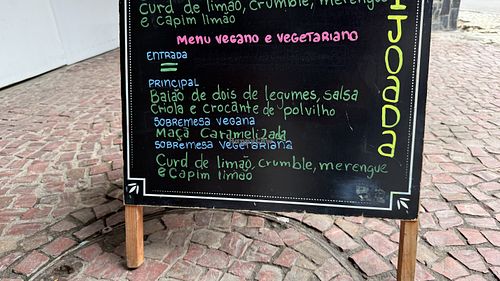 Curd de limão, crumble, merengue
e capim limão
Menu vegano e vegetariano
Entrada
=
Principal
Baião de dois de legumes, salsa
criola e crocante de polvilho
Sobremesa vegana
Maçã Caramelizada
Sobremesa vegetariana
Curd de limão, crumble, merengue
e capim limão
IJOADA